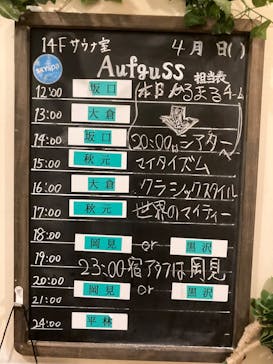 14Fサウナ室 4月 日( )
SKYSPA
Aufguss 担当表
12:00 坂口
13:00 大倉
14:00 坂口 20:00はシアターへ
15:00 秋元 マイタイズム
16:00 大倉 クラシックスタイル
17:00 秋元 世界のマイティー
18:00 岡見 or 黒沢
19:00 23:00宿アウフは岡見
20:00 岡見 or 黒沢
21:00
24:00 平林